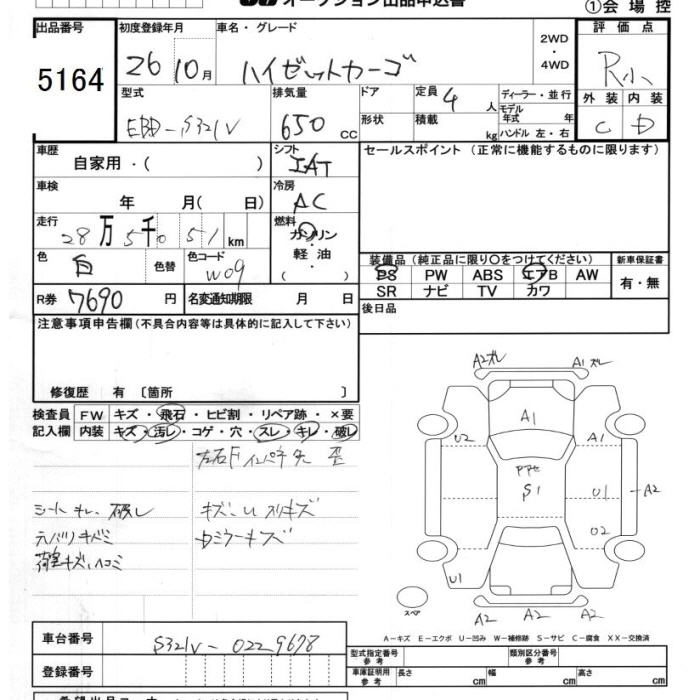 オークション出品申込書
①会場控
出品番号
5164
初度登録年月
26 10月
車名・グレード
ハイゼットカーゴ
2WD
・
4WD
評価点
R小
外装 内装
C D
型式
EBD-S321V
排気量
650 CC
ドア
形状
定員 4 人
積載 kg
ディーラー・並行
モデル年式 年
ハンドル 左・右
車歴
自家用・( )
シフト
IAT
セールスポイント (正常に機能するものに限ります)
車検
年 月( 日)
冷房
AC
走行
28万5千051 km
燃料
ガソリン
・
軽油
( )
色
白
色替
色コード
W09
装備品 (純正品に限り○をつけてください)
PS PW ABS エアB AW
SR ナビ TV カワ
新車保証書
有・無
R券 7690 円
名変通知期限 月 日
後日品
注意事項申告欄(不具合内容等は具体的に記入して下さい)
修復歴 有 〔箇所 〕
検査員
記入欄
FW キズ・飛石・ヒビ割・リペア跡・×要
内装 キズ・汚レ・コゲ・穴・スレ・キレ・破レ
左右F インパネ 歪
シートキレ、破レ
キズ、U スリキズ
元バリキバミ
カミラーキズ
荷室キズ、ヘコミ
A2ズレ
A1ズレ
A1
U2
A1
ドアセ
S1
U1
A2
U2
U1
A2 A2 A2
スペア
A-キズ E-エクボ U-凹み W-補修跡 S-サビ C-腐食 XX-交換済
車台番号
S321V-0229678
登録番号
型式指定番号
参考
類別区分番号
参考
車庫証明用
参考
長さ cm 幅 cm 高さ cm